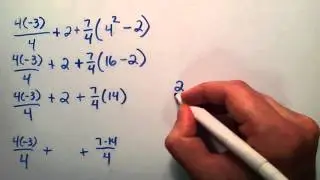 4(-3)/4 + 2 + 7/4(4² - 2)
4(-3)/4 + 2 + 7/4(16 - 2)
4(-3)/4 + 2 + 7/4(14)
4(-3)/4 +   + 7·14/4
2